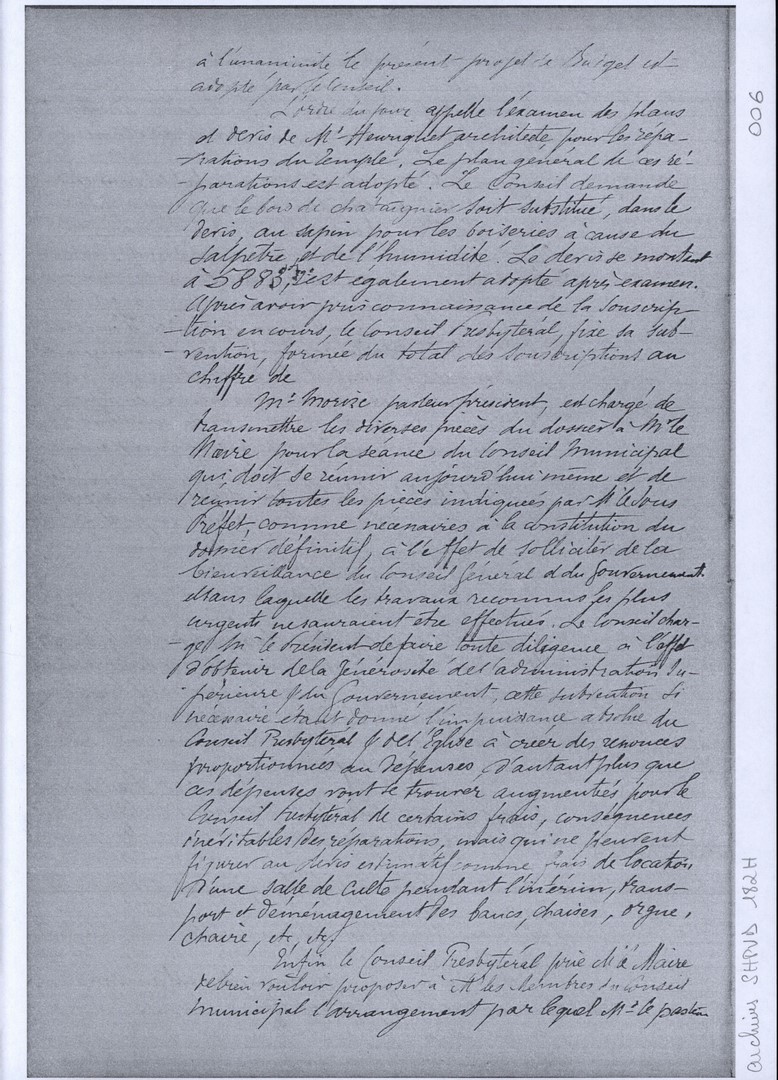 à l'unanimité le présent projet de Budget est
adopté par le Conseil.
L'ordre du jour appelle l'examen des plans
et devis de Mr Heuruquet architecte pour les répa-
-rations du Temple. Le plan général de ces ré-
-parations est adopté. Le Conseil demande
que le bois de chataignier soit substitué, dans le
devis, au sapin pour les boiseries à cause du
Salpêtre et de l'humidité. Le devis se montant
à 5883, est également adopté après examen.
Après avoir pris connaissance de la Souscrip-
-tion en cours, le Conseil Presbytéral, fixe sa sub-
-vention, formée du total des souscriptions au
chiffre de
Mr Morize pasteur président, est chargé de
transmettre les diverses pièces du dossier à Mr le
Maire pour la séance du Conseil Municipal
qui doit se réunir aujourd'hui même et de
réunir toutes les pièces indiquées par M. le Sous
Préfet comme nécessaires à la constitution du
dossier définitif, à l'effet de solliciter de la
bienveillance du Conseil Général et du Gouvernement
sans laquelle les travaux reconnus les plus
urgents ne sauraient être effectués. Le Conseil char-
-ge Mr le Président de faire toute diligence à l'effet
d'obtenir de la générosité de l'administration Su-
-périeure & du Gouvernement, cette subvention si
nécessaire étant donné l'impuissance absolue du
Conseil Presbytéral & de l'Eglise à créer des ressources
proportionnées au dépenses d'autant plus que
ces dépenses vont se trouver augmentées pour le
Conseil Presbytéral de certains frais, conséquences
inévitables des réparations, mais qui ne peuvent
figurer au devis estimatif comme frais de location
d'une salle de culte pendant l'intérim, trans-
port et déménagement des bancs, chaises, orgue,
chaire, etc, etc.
Enfin le Conseil Presbytéral prie M. le Maire
de bien vouloir proposer à M. les Membres du Conseil
Municipal l'arrangement par lequel Mr le pasteur
006
archives SHPVD 182H